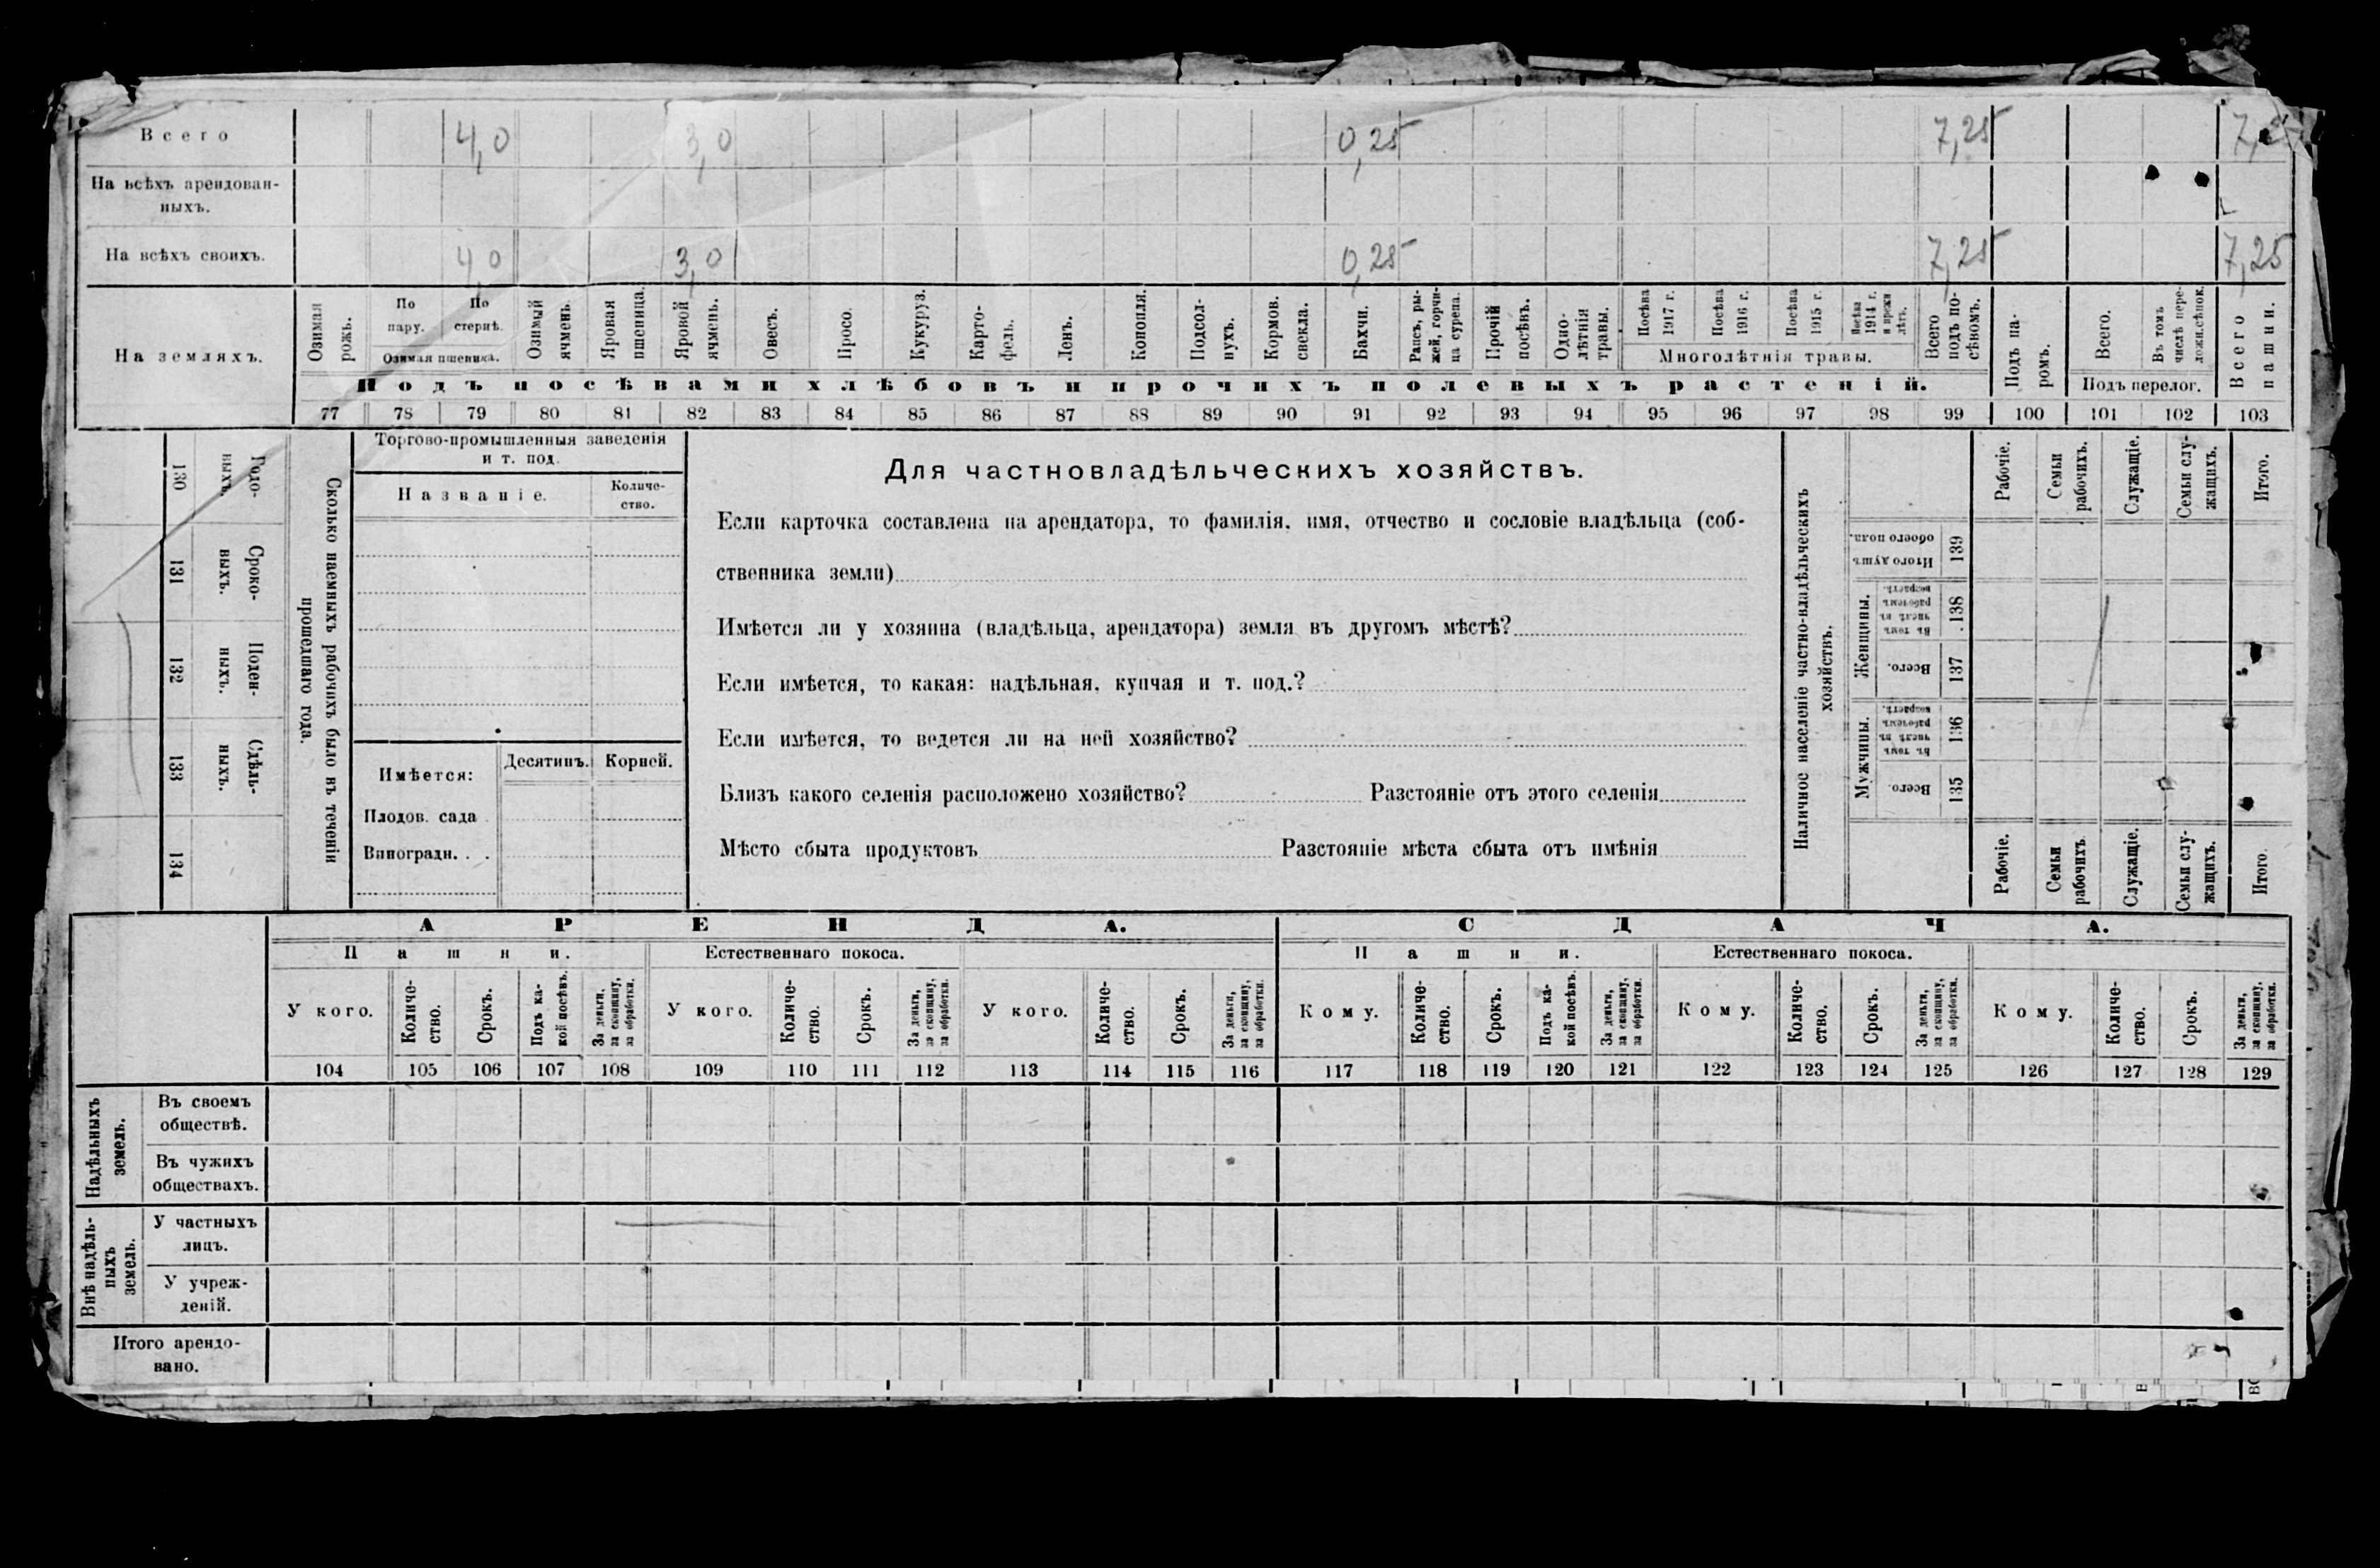 Всего 4,0 3,0 0,25 7,25
На всѣхъ арендован-
ныхъ.
На всѣхъ своихъ. 4,0 3,0 0,25 7,25 7,25
На земляхъ.
Озимая рожь.
По пару.
По стернѣ.
Озимая пшеница.
Озимый ячмень.
Яровая пшеница.
Яровой ячмень.
Овесъ.
Просо.
Кукуруз.
Карто-
фель.
Ленъ.
Конопля.
Подсол-
нухъ.
Кормов.
свекла.
Бахчи.
Рапсъ, ры-
жей, горчи-
ца сурепа.
Прочій
посѣвъ.
Одно-
лѣтнія
травы.
Посѣва
1917 г.
Посѣва
1916 г.
Посѣва
1915 г.
Посѣва
1914 г.
и прежн
лѣтъ.
Многолѣтнія травы.
Всего
подъ по-
сѣвомъ.
Подъ па-
ромъ.
Всего.
Въ томъ
числѣ пере-
ложн.сѣнок.
Подъ перелог.
Всего
пашни.
Подъ посѣвами хлѣбовъ и прочихъ полевыхъ растеній.
77 78 79 80 81 82 83 84 85 86 87 88 89 90 91 92 93 94 95 96 97 98 99 100 101 102 103
130 Годо-
ныхъ.
131 Сроко-
выхъ.
132 Поден-
ныхъ.
133 Сдѣль-
ныхъ.
134
Сколько наемныхъ рабочихъ было въ теченіи
прошедшаго года.
Торгово-промышленныя заведенія
и т. под.
Названіе.
Количе-
ство.
Имѣется:
Десятинъ. Корней.
Плодов. сада
Виноградн. . .
Для частновладѣльческихъ хозяйствъ.
Если карточка составлена на арендатора, то фамилія, имя, отчество и сословіе владѣльца (соб-
ственника земли)
Имѣется ли у хозяина (владѣльца, арендатора) земля въ другомъ мѣстѣ?
Если имѣется, то какая: надѣльная, купчая и т. под.?
Если имѣется, то ведется ли на ней хозяйство?
Близъ какого селенія расположено хозяйство? Разстояніе отъ этого селенія
Мѣсто сбыта продуктовъ Разстояніе мѣста сбыта отъ имѣнія
Наличное населеніе частно-владѣльческихъ
хозяйствъ.
Рабочіе.
Семьи
рабочихъ.
Служащіе.
Семьи слу-
жащихъ.
Итого.
Итого душъ
обоего пола.
139
Женщины.
Въ томъ
числѣ въ
рабочемъ
возрастѣ.
138
Всего.
137
Мужчины.
Въ томъ
числѣ въ
рабочемъ
возрастѣ.
136
Всего.
135
Рабочіе.
Семьи
рабочихъ
Служащіе.
Семьи слу-
жащихъ.
Итого
АРЕНДА. СДАЧА.
Пашни. Естественнаго покоса. Пашни. Естественнаго покоса.
У кого.
Количе-
ство.
Срокъ.
Подъ ка-
кой посѣвъ.
За деньги,
за скопщину,
за обработки.
У кого.
Количе-
ство.
Срокъ.
За деньги,
за скопщину,
за обработки.
У кого.
Количе-
ство.
Срокъ.
За деньги,
за скопщину,
за обработки.
Кому.
Количе-
ство.
Срокъ.
Подъ ка-
кой посѣвъ.
За деньги,
за скопщину,
за обработки.
Кому.
Количе-
ство.
Срокъ.
За деньги,
за скопщину,
за обработки.
Кому.
Количе-
ство.
Срокъ.
За деньги,
за скопщину,
за обработки.
104 105 106 107 108 109 110 111 112 113 114 115 116 117 118 119 120 121 122 123 124 125 126 127 128 129
Надѣльныхъ
земель.
Въ своемъ
обществѣ.
Въ чужихъ
обществахъ.
Внѣ надѣль-
ныхъ
земель.
У частныхъ
лицъ.
У учреж-
деній.
Итого арендо-
вано.